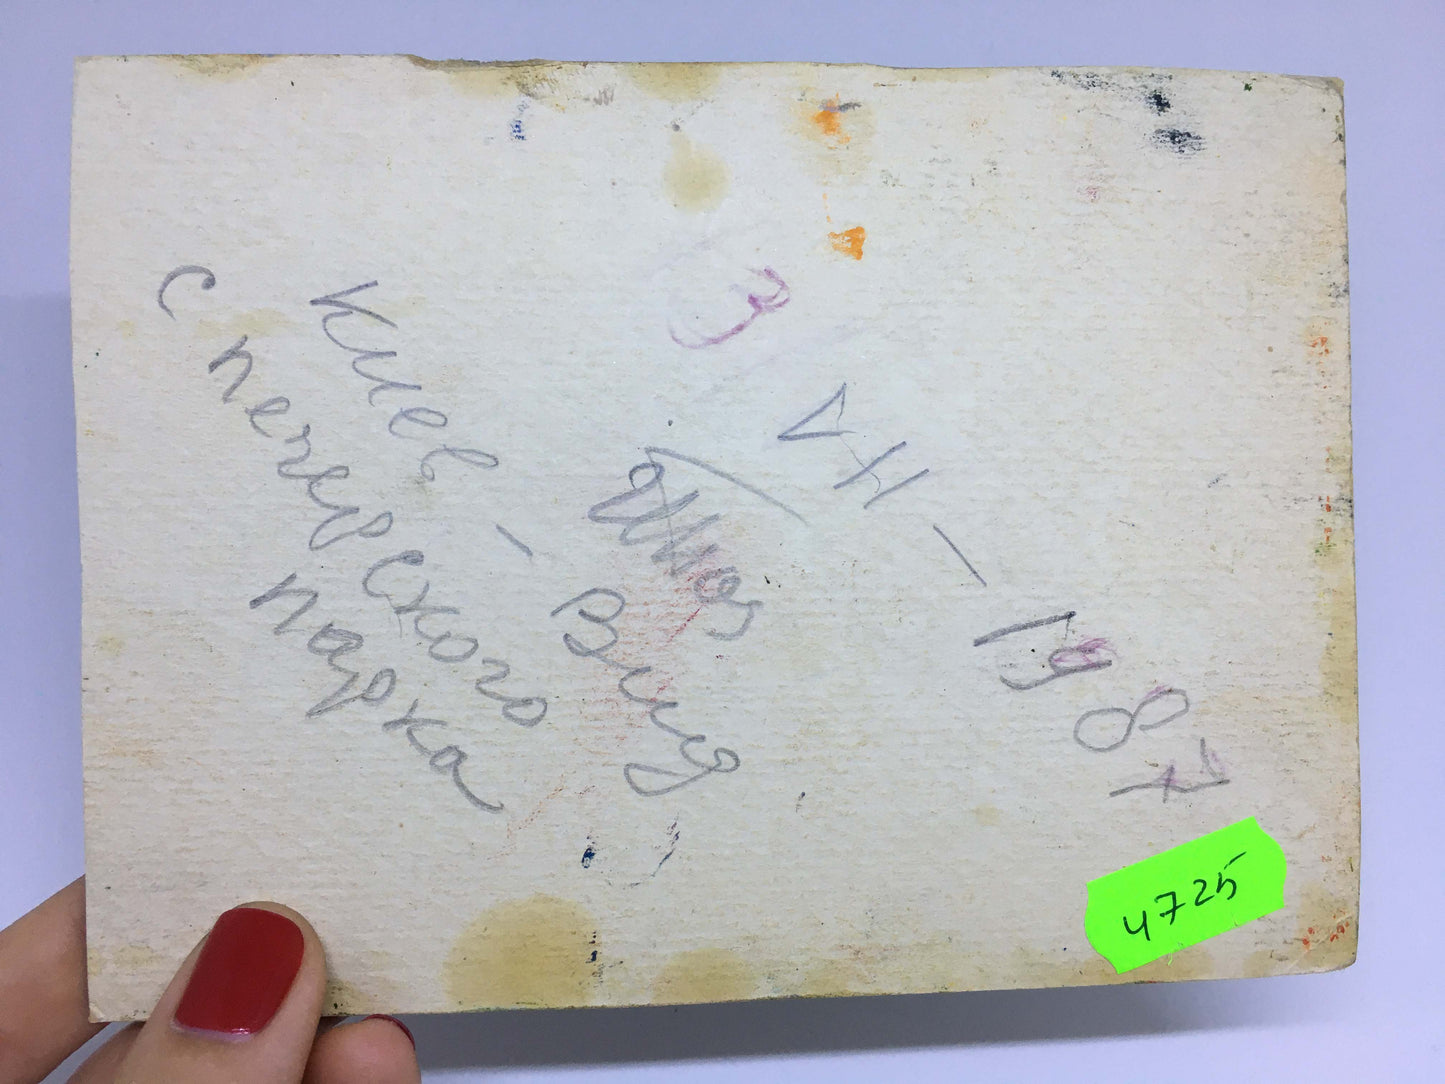 3
VII - 1987
Киев - Вид
с печерского
парка
4725